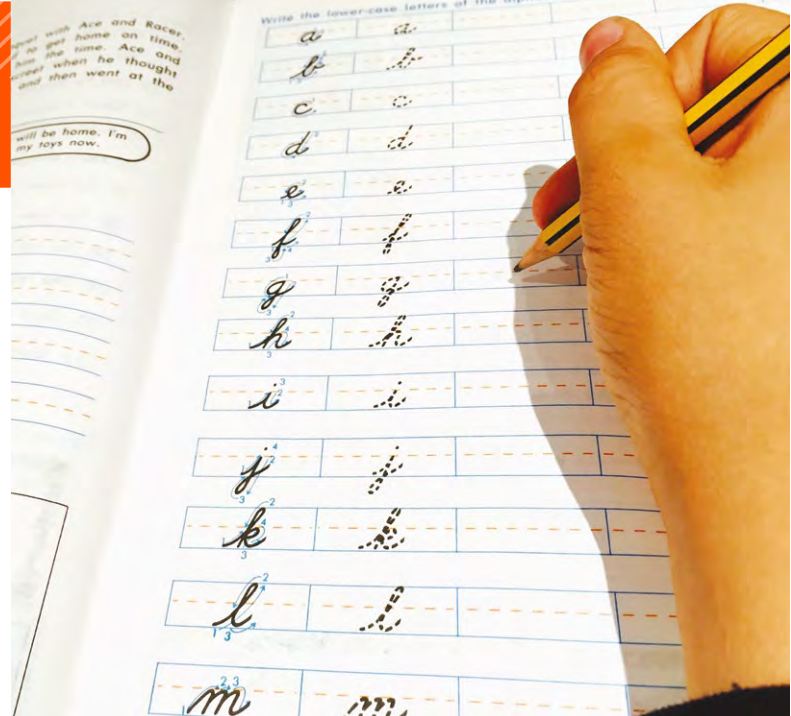 with Ace and Racer.
to get home on time.
the time. Ace and
when he thought
and then went at the
will be home. I'm
my toys now.
Write the lower-case letters of the
a a
b b
c c
d d
e e
f f
g g
h h
i i
j j
k k
l l
m m